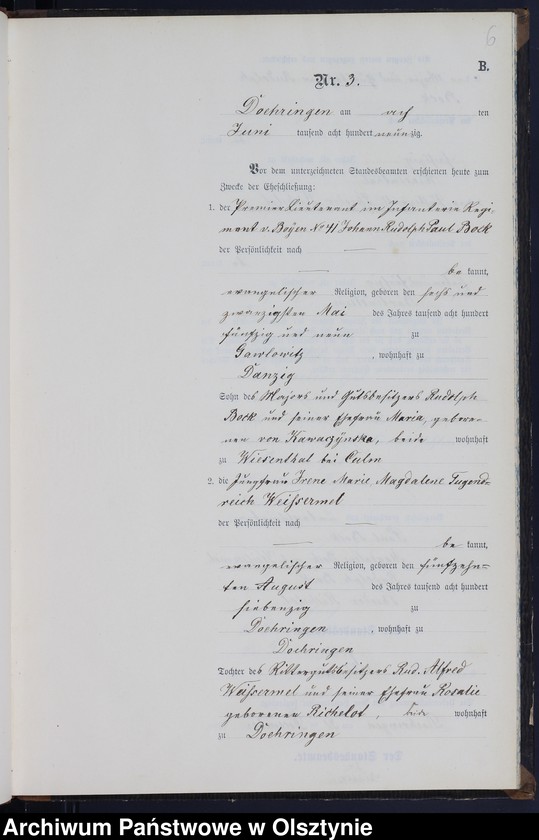 6
B.
Nr. 3.
Doehringen am acht ten
Juni tausend acht hundert neunzig.
Vor dem unterzeichneten Standesbeamten erschienen heute zum
Zwecke der Eheschließung:
1. der Premier Lieutenant im Infanterie Regi-
ment v. Boÿen No 41 Johann Rudolph Paul Bock
der Persönlichkeit nach
be kannt,
evangelischer Religion, geboren den sechs und
zwanzigsten Mai des Jahres tausend acht hundert
fünfzig und neun zu
Gawlowitz, wohnhaft zu
Danzig
Sohn des Majors und Gutsbesitzers Rudolph
Bock und seiner Ehefrau Maria, gebore-
nen von Kawaczÿnska, beide wohnhaft
zu Wiesenthal bei Culm
2. die Jungfrau Irene Marie Magdalene Tugend-
reich Weissermel
der Persönlichkeit nach
be kannt,
evangelischer Religion, geboren den fünfzehn-
ten August des Jahres tausend acht hundert
siebenzig zu
Doehringen, wohnhaft zu
Doehringen
Tochter des Rittergutsbesitzers Rud. Alfred
Weissermel und seiner Ehefrau Rosalie
geborenen Richelot, beide wohnhaft
zu Doehringen
Archiwum Państwowe w Olsztynie